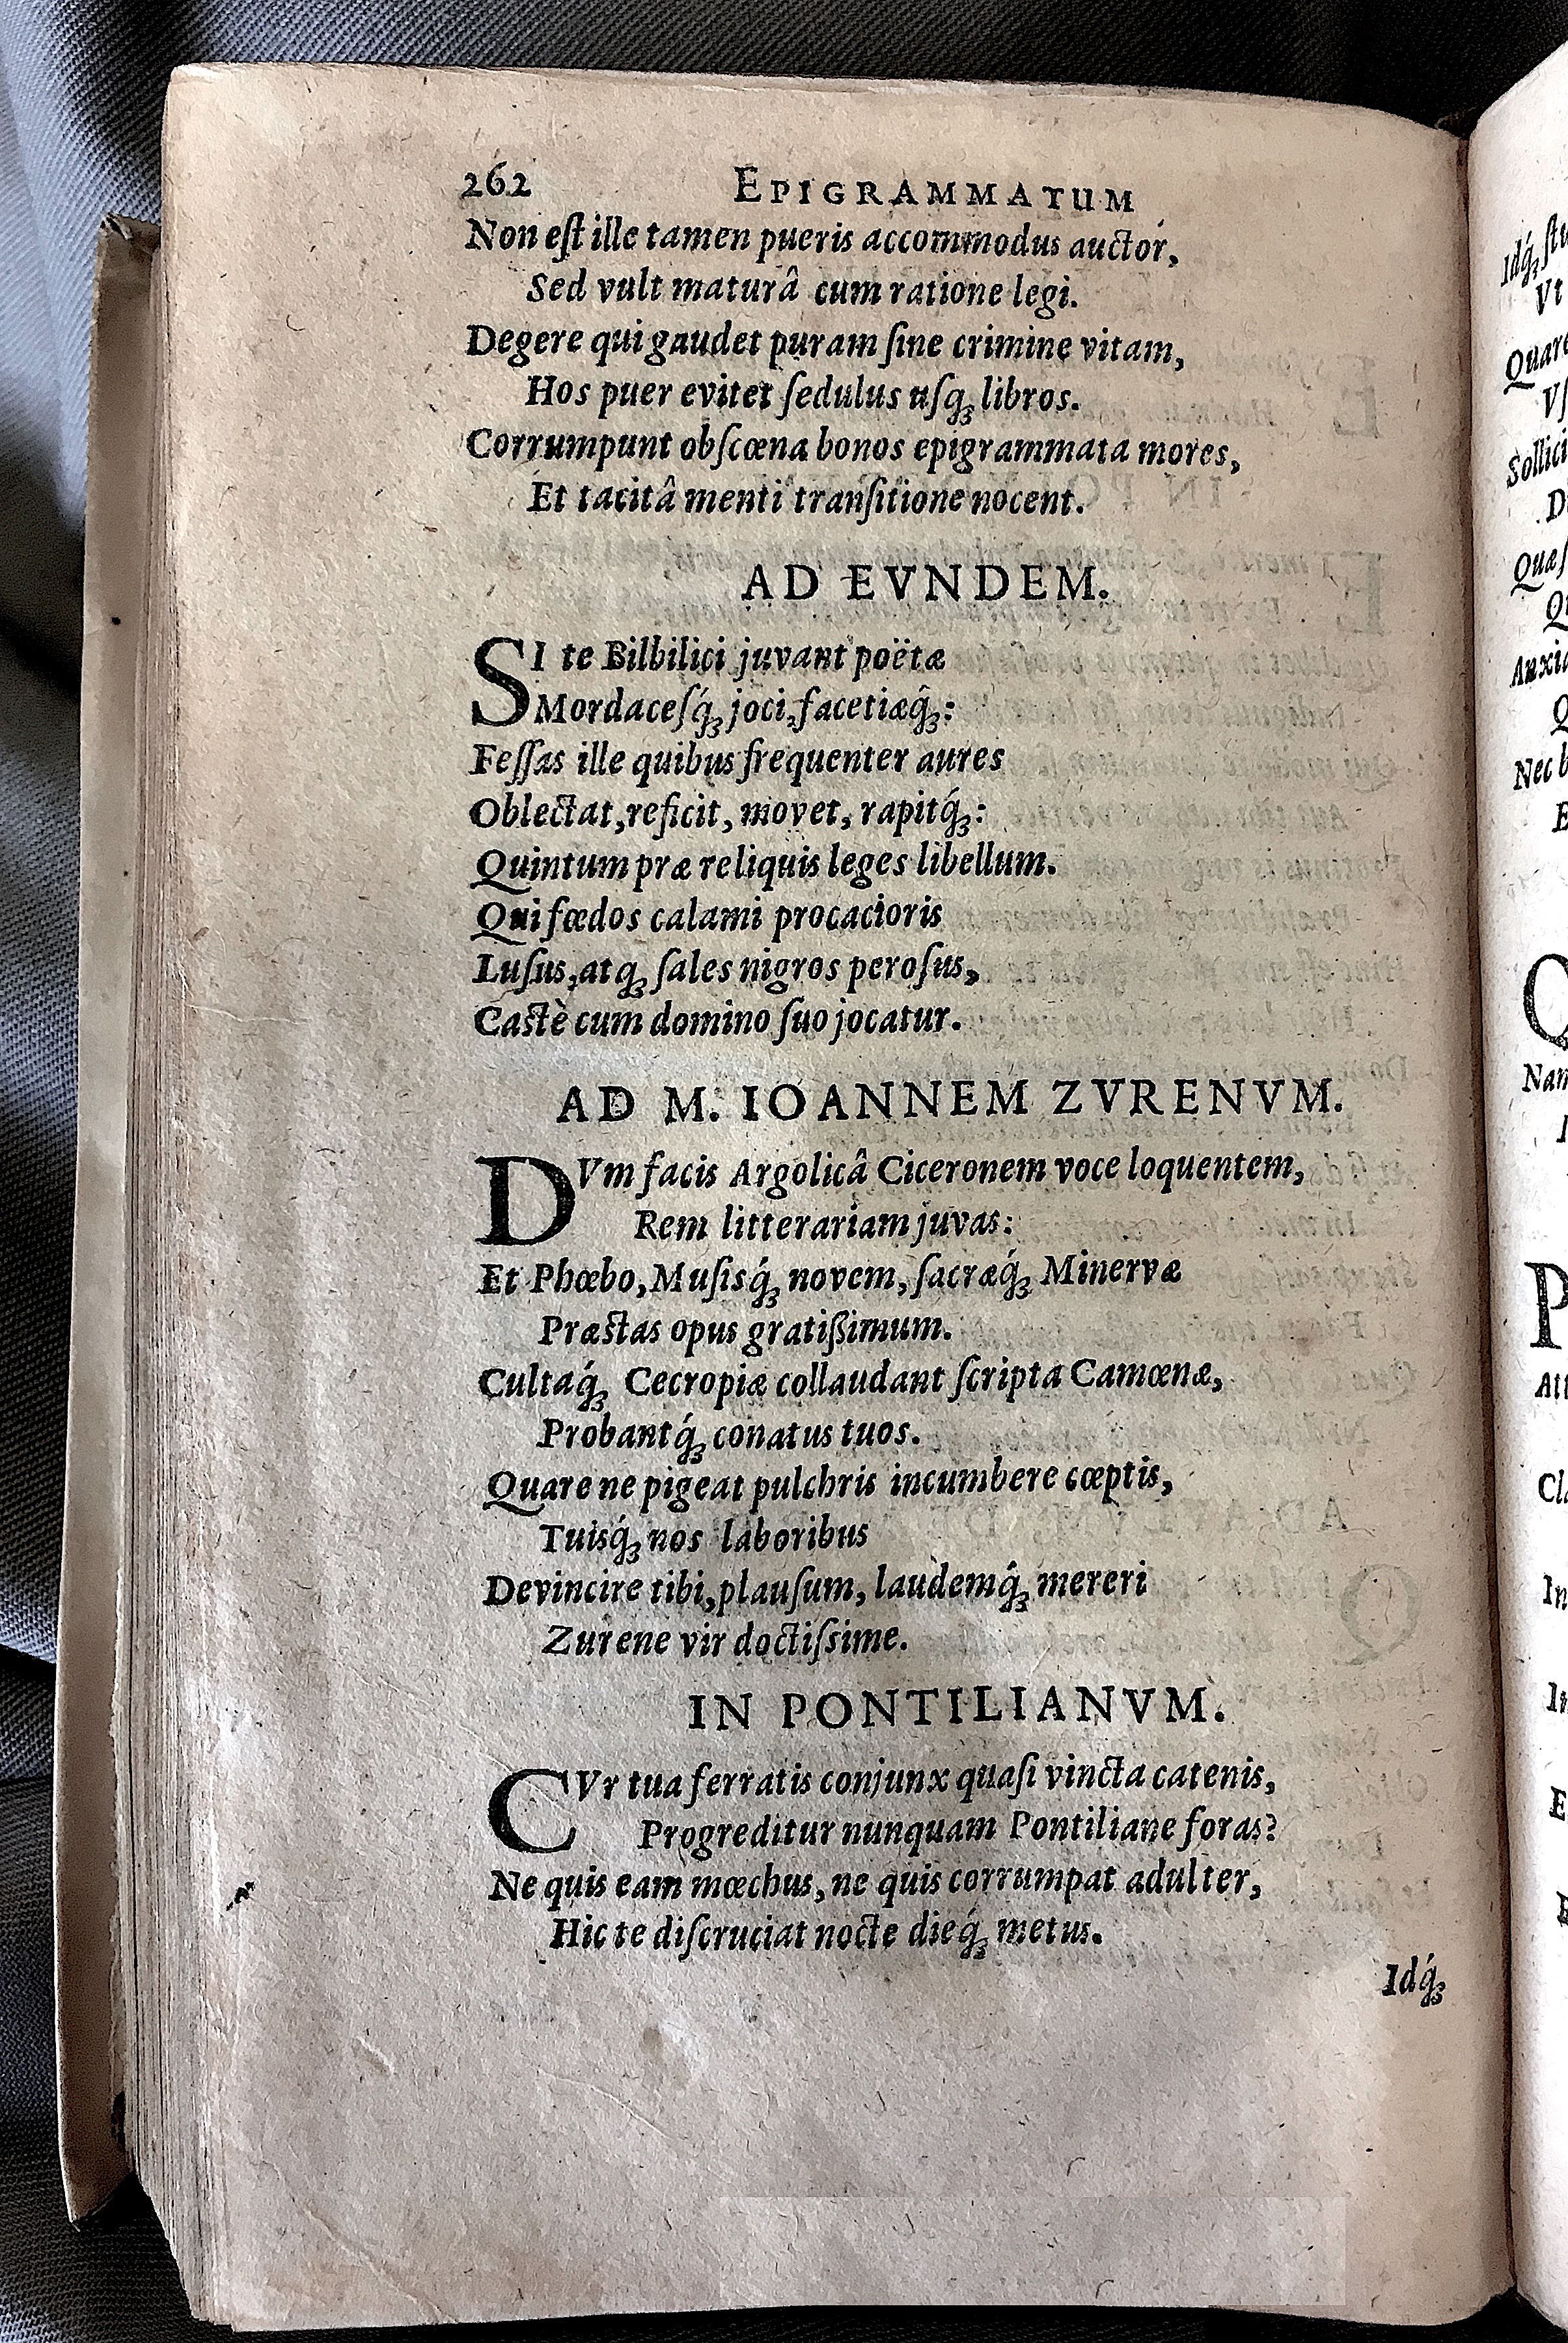 262 EPIGRAMMATUM
Non eſt ille tamen pueris accommodus auctor,
Sed vult maturâ cum ratione legi.
Degere qui gaudet puram ſine crimine vitam,
Hos puer evitet ſedulus uſq; libros.
Corrumpunt obſcœna bonos epigrammata mores,
Et tacitâ menti tranſitione nocent.
AD EVNDEM.
SI te Bilbilici juvant poëtæ
Mordaceſq́; joci, facetiæq́;:
Feſſas ille quibus frequenter aures
Oblectat, reficit, movet, rapitq́;:
Quintum præ reliquis leges libellum.
Qui fœdos calami procacioris
Luſus, atq; ſales nigros peroſus,
Castè cum domino ſuo jocatur.
AD M. IOANNEM ZVRENVM.
DVm facis Argolicâ Ciceronem voce loquentem,
Rem litterariam juvas:
Et Phœbo, Muſisq́; novem, ſacræq́; Minervæ
Præstas opus gratißimum.
Cultaq́; Cecropiæ collaudant ſcripta Camœnæ,
Probantq́; conatus tuos.
Quare ne pigeat pulchris incumbere cœptis,
Tuisq́; nos laboribus
Devincire tibi, plauſum, laudemq́; mereri
Zurene vir doctiſsime.
IN PONTILIANVM.
CVr tua ferratis conjunx quaſi vincta catenis,
Progreditur nunquam Pontiliane foras?
Ne quis eam mœchus, ne quis corrumpat adulter,
Hic te diſcruciat nocte dieq́; metus.
Idq́;